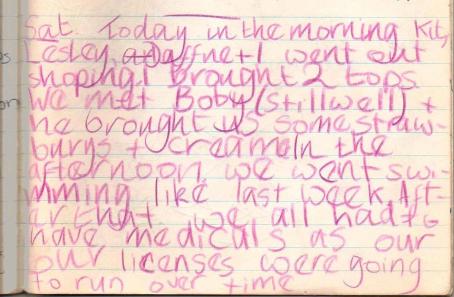 Sat. Today in the morning Kit,
Lesley, affnet I went out
shoping I brought 2 tops.
We met Boby (Stillwell) +
he brought us some straw-
burys + cream In the
afternoon we went swi-
mming like last week. Aft-
er that we all had to
have mediculs as our
our licenses were going
to run over time